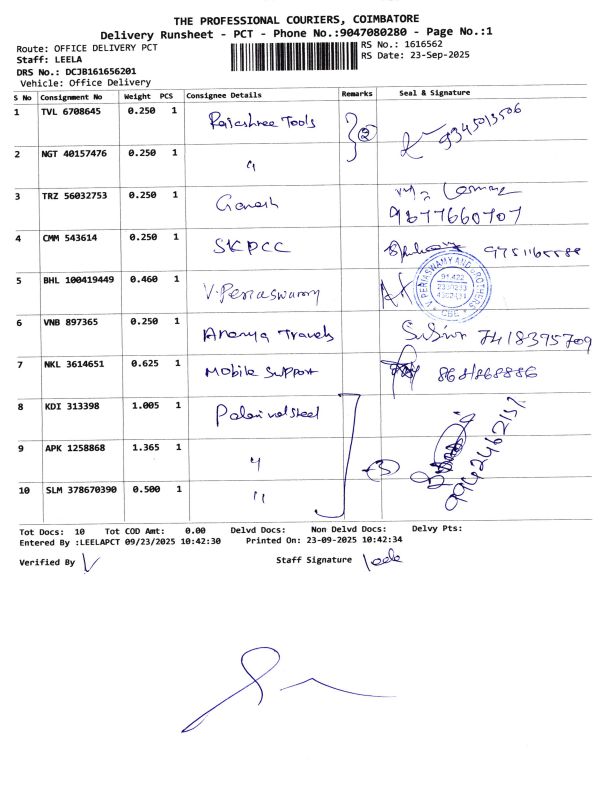 THE PROFESSIONAL COURIERS, COIMBATORE
Delivery Runsheet - PCT - Phone No.:9047080280 - Page No.:1
Route: OFFICE DELIVERY PCT
RS No.: 1616562
Staff: LEELA
RS Date: 23-Sep-2025
DRS No.: DCJB161656201
Vehicle: Office Delivery
S No Consignment No Weight PCS Consignee Details Remarks Seal & Signature
1 TVL 6708645 0.250 1 Rajashree Tools 2 9345013506
2 NGT 40157476 0.250 1 "
3 TRZ 56032753 0.250 1 Ganesh 9677660707
4 CMM 543614 0.250 1 SKPCC
5 BHL 100419449 0.460 1 V. Periaswamy
V. PERIASWAMY AND BROTHERS
CBE
6 VNB 897365 0.250 1 Ananya Travels 7418395709
7 NKL 3614651 0.625 1 Mobile Support
8 KDI 313398 1.005 1
9 APK 1258868 1.365 1 " 3
10 SLM 378670390 0.500 1 "
Tot Docs: 10 Tot COD Amt: 0.00 Delvd Docs: Non Delvd Docs: Delvy Pts:
Entered By :LEELAPCT 09/23/2025 10:42:30 Printed On: 23-09-2025 10:42:34
Verified By
Staff Signature Leela